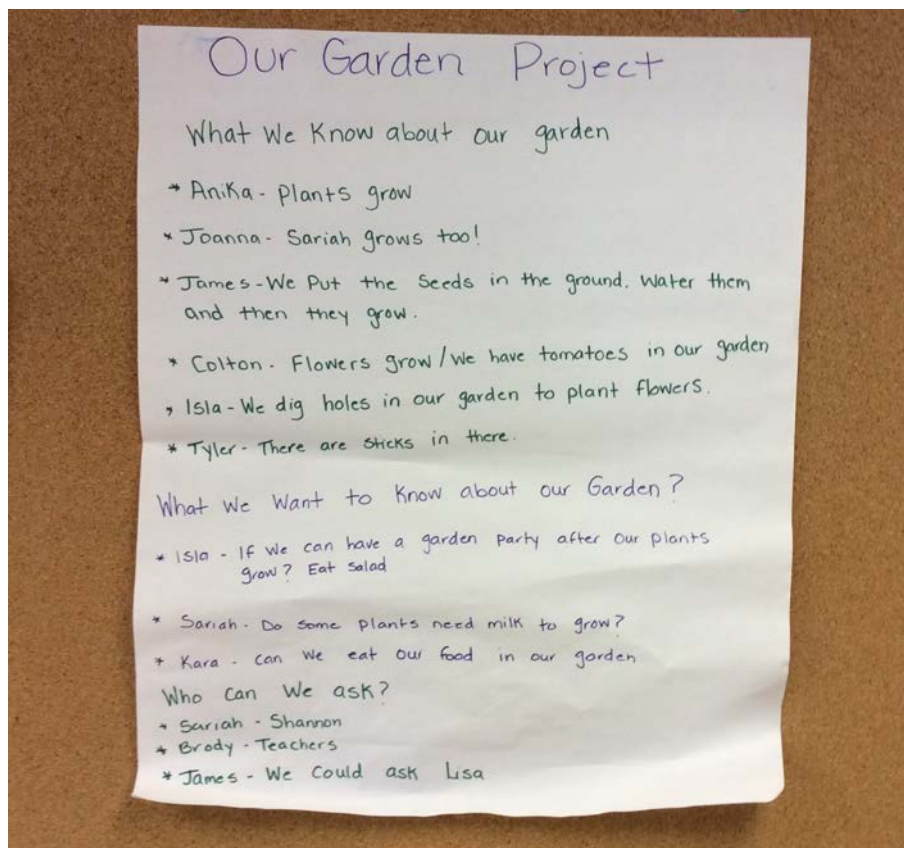 Our Garden Project
What We Know about our garden
* Anika - Plants grow
* Joanna - Sariah grows too!
* James - We Put the Seeds in the ground. Water them
and then they grow.
* Colton - Flowers grow/We have tomatoes in our garden
* Isla - We dig holes in our garden to plant flowers.
* Tyler - There are sticks in there.
What We Want to Know about our Garden?
* Isla - If we can have a garden party after our plants
grow? Eat Salad
* Sariah - Do some plants need milk to grow?
* Kara - can we eat our food in our garden
Who can We ask?
* Sariah - Shannon
* Brody - Teachers
* James - We Could ask Lisa